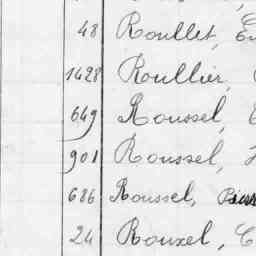 48 Roullet,
1428 Roullier,
649 Roussel,
901 Roussel,
686 Roussel,
24 Rouxel,